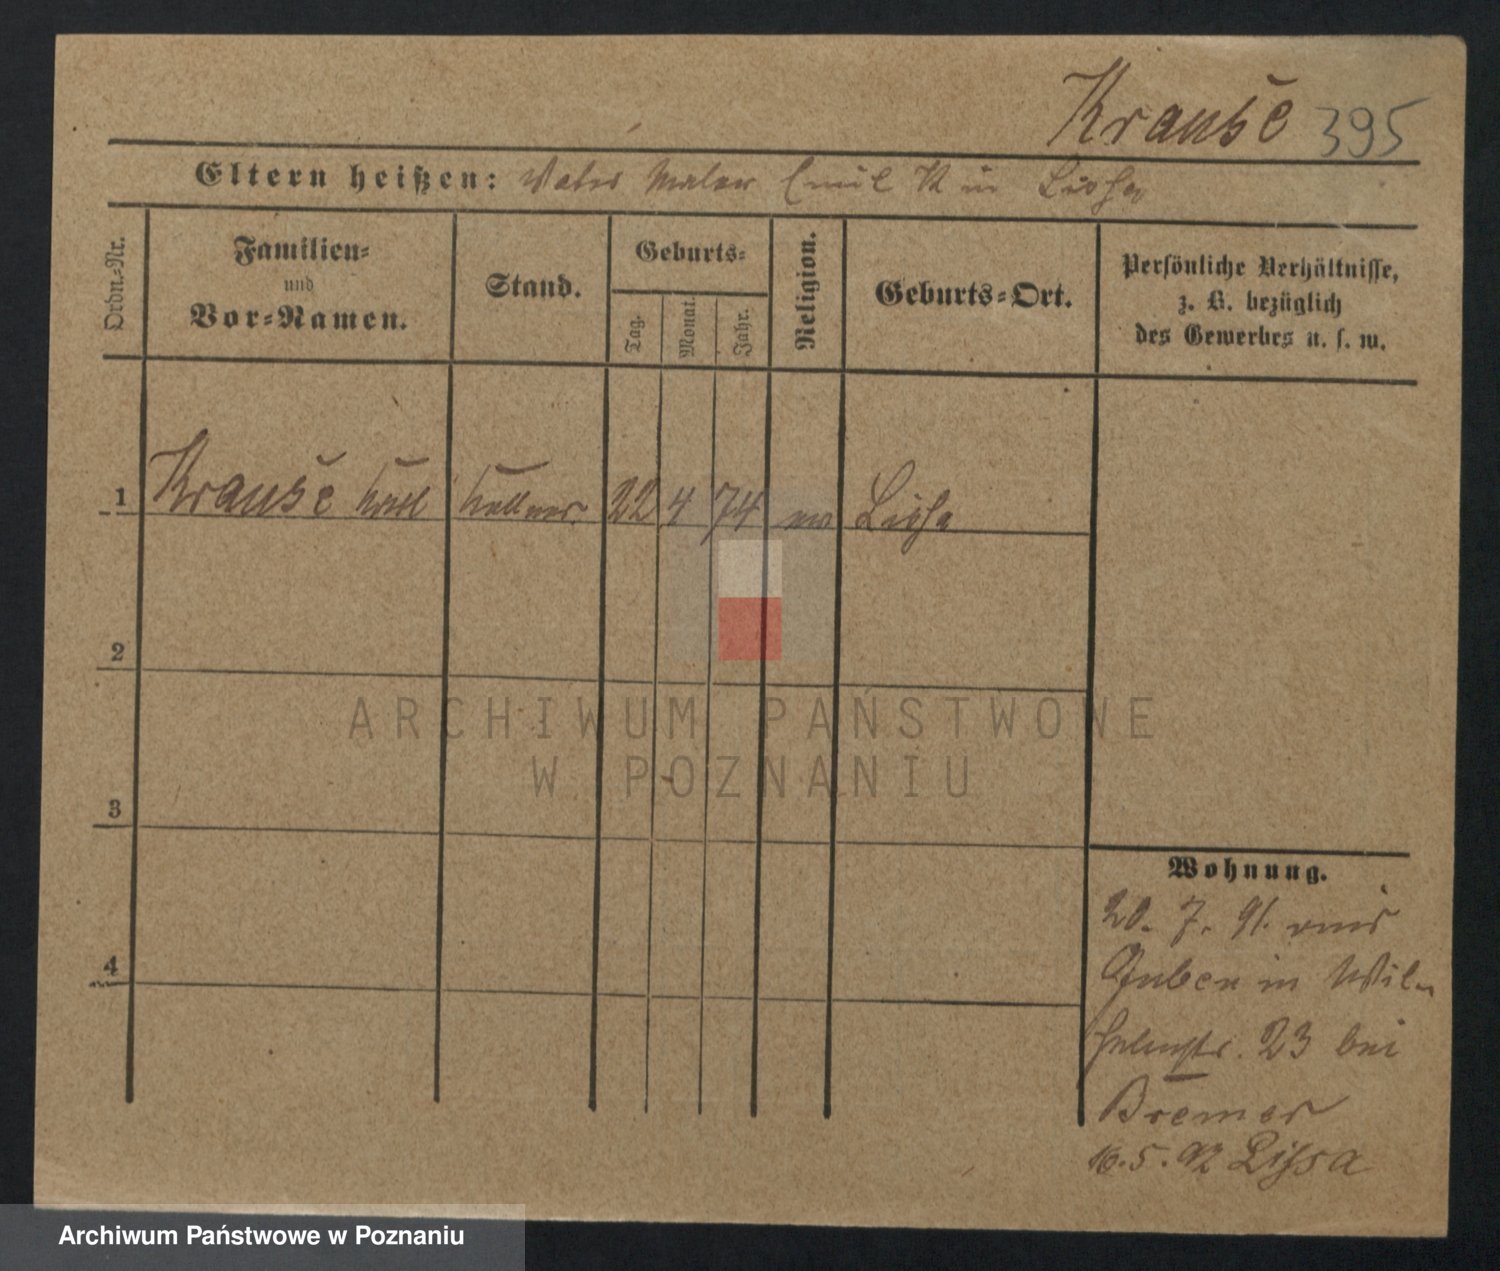 Krause 395
Eltern heißen: Vater Maler Emil K in Lissa
Ordn.-Nr.
Familien-
und
Vor-Namen.
Stand.
Geburts-
Tag.
Monat.
Jahr.
Religion.
Geburts-Ort.
Persönliche Verhältnisse,
z. B. bezüglich
des Gewerbes u. s. w.
1 Krause Kellner 22 4 74 ev Lissa
2
3
4
Wohnung.
20. 7. 91 aus
Guben in Wil-
helmstr. 23 bei
Bremer
16. 5. 92 Lissa
ARCHIWUM PAŃSTWOWE
W POZNANIU
Archiwum Państwowe w Poznaniu